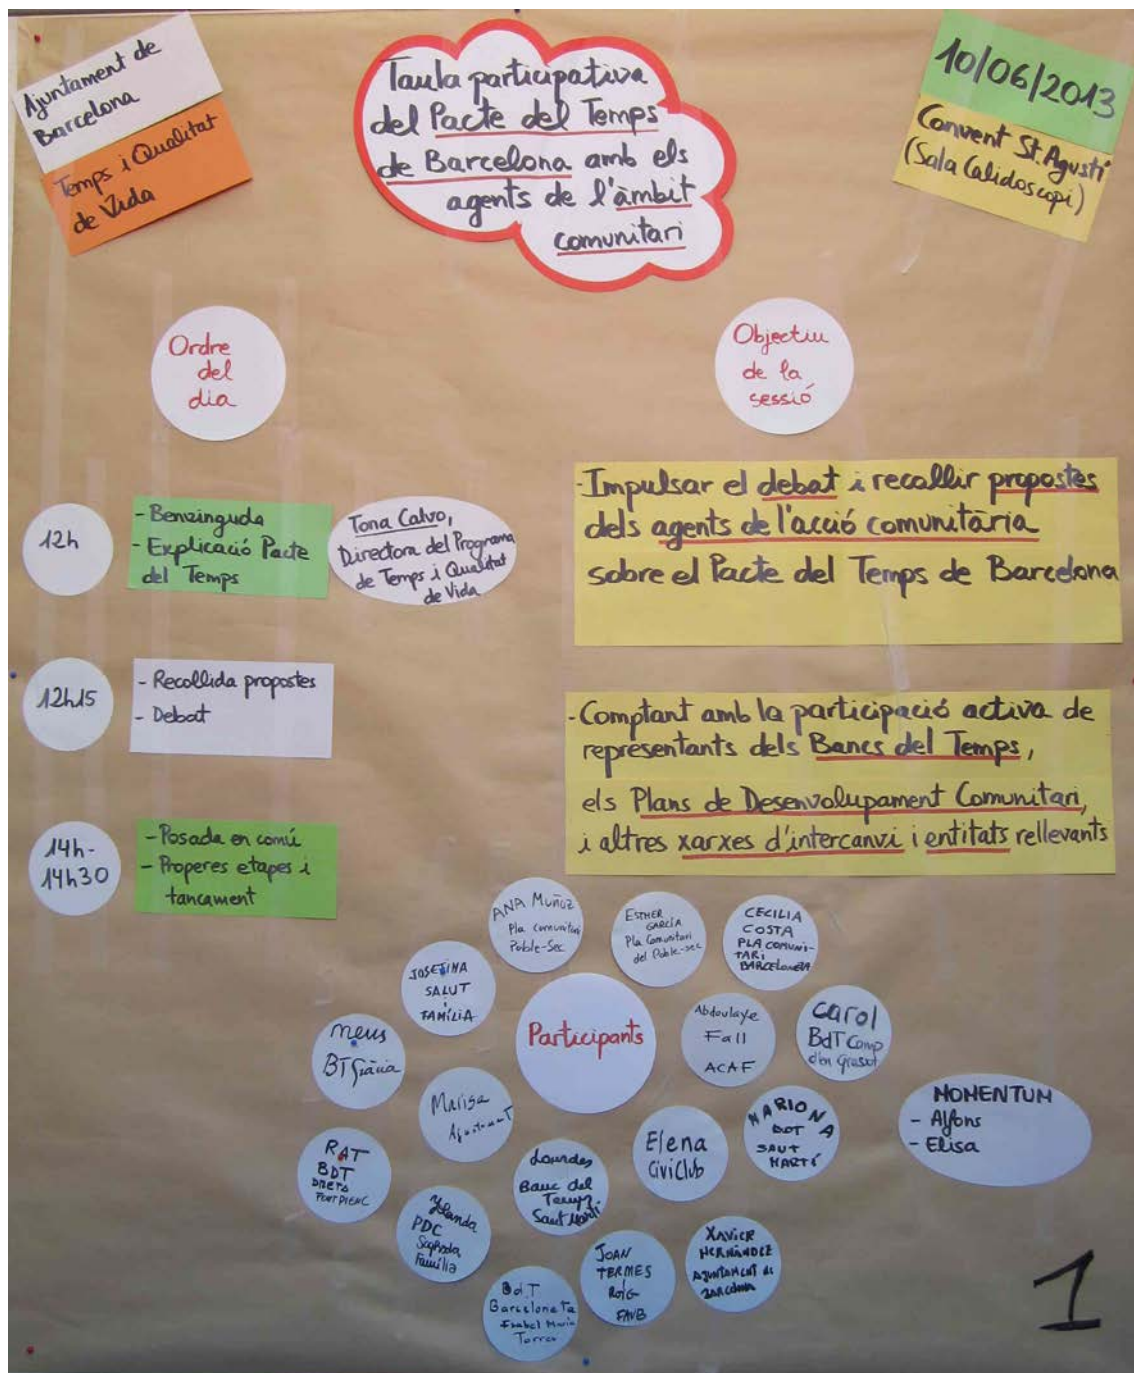 Ajuntament de
Barcelona
Temps i Qualitat
de Vida
Taula participativa
del Pacte del Temps
de Barcelona amb els
agents de l'àmbit
comunitari
10/06/2013
Convent St. Agustí
(Sala Calidoscopi)
Ordre
del
dia
Objectiu
de la
sessió
12h
- Benvinguda
- Explicació Pacte
del Temps
Tona Calvo,
Directora del Programa
de Temps i Qualitat
de Vida
12h15
- Recollida propostes
- Debat
14h-
14h30
- Posada en comú
- Properes etapes i
tancament
- Impulsar el debat i recollir propostes
dels agents de l'acció comunitària
sobre el Pacte del Temps de Barcelona
- Comptant amb la participació activa de
representants dels Bancs del Temps,
els Plans de Desenvolupament Comunitari,
i altres xarxes d'intercanvi i entitats rellevants
ANA MUÑOZ
Pla comunitari
Poble-Sec
ESTHER
GARCÍA
Pla Comunitari
del Poble-sec
CECILIA
COSTA
PLA COMUNI-
TARI
BARCELONETA
JOSEFINA
SALUT
i
FAMÍLIA
Participants
Abdoulaye
Fall
ACAF
Carol
BdT Camp
d'en Grassot
Neus
BT Gràcia
Marisa
Ajuntament
Elena
CiviClub
MARIONA
BDT
SANT
MARTÍ
MOMENTUM
- Alfons
- Elisa
RAT
BDT
DRETA
FORT PIENC
Lourdes
Banc del
Temps
Sant Martí
Yolanda
PDC
Sagrada
Família
JOAN
TERMES
ROIG
FAVB
XAVIER
HERNÁNDEZ
AJUNTAMENT de
BARCELONA
BdT
Barceloneta
Isabel Maria
Torres
1